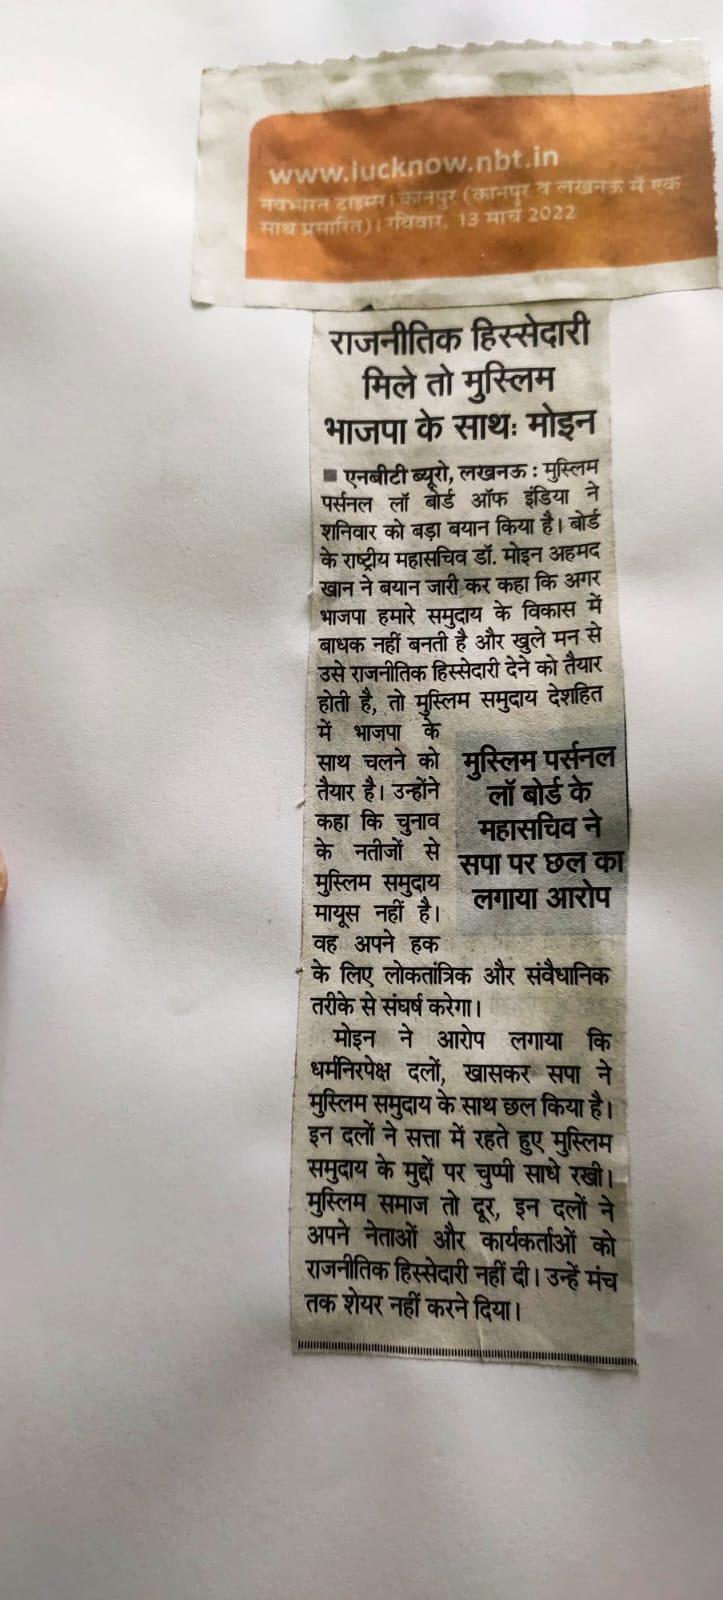 www.lucknow.nbt.in
नवभारत टाइम्स। कानपुर (कानपुर व लखनऊ में एक
साथ प्रसारित)। रविवार, 13 मार्च 2022
राजनीतिक हिस्सेदारी
मिले तो मुस्लिम
भाजपा के साथः मोइन
■ एनबीटी ब्यूरो, लखनऊ : मुस्लिम
पर्सनल लॉ बोर्ड ऑफ इंडिया ने
शनिवार को बड़ा बयान किया है। बोर्ड
के राष्ट्रीय महासचिव डॉ. मोइन अहमद
खान ने बयान जारी कर कहा कि अगर
भाजपा हमारे समुदाय के विकास में
बाधक नहीं बनती है और खुले मन से
उसे राजनीतिक हिस्सेदारी देने को तैयार
होती है, तो मुस्लिम समुदाय देशहित
में भाजपा के
साथ चलने को
तैयार है। उन्होंने
कहा कि चुनाव
के नतीजों से
मुस्लिम समुदाय
मायूस नहीं है।
वह अपने हक
के लिए लोकतांत्रिक और संवैधानिक
तरीके से संघर्ष करेगा।
मुस्लिम पर्सनल
लॉ बोर्ड के
महासचिव ने
सपा पर छल का
लगाया आरोप
मोइन ने आरोप लगाया कि
धर्मनिरपेक्ष दलों, खासकर सपा ने
मुस्लिम समुदाय के साथ छल किया है।
इन दलों ने सत्ता में रहते हुए मुस्लिम
समुदाय के मुद्दों पर चुप्पी साधे रखी।
मुस्लिम समाज तो दूर, इन दलों ने
अपने नेताओं और कार्यकर्ताओं को
राजनीतिक हिस्सेदारी नहीं दी। उन्हें मंच
तक शेयर नहीं करने दिया।